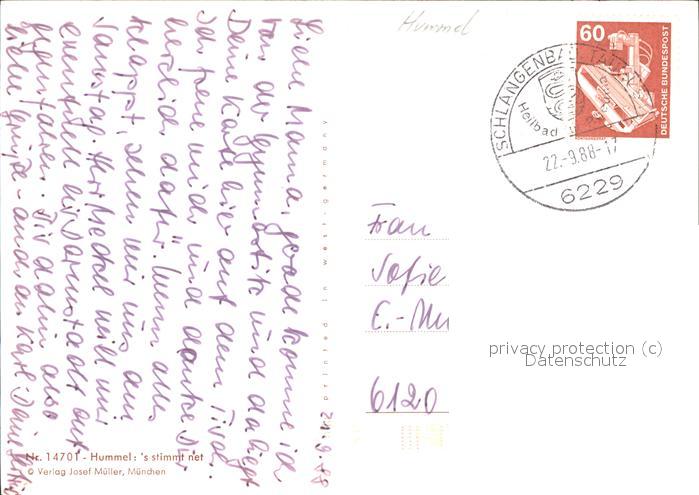 Hummel
60
DEUTSCHE BUNDESPOST
SCHLANGENBAD
Heilbad
22.-9.88-17
6229
21.9.88
Liebe Mama, gerade komme ich
von der Gymnastik und da liegt
Deine Karte hier auf dem Tisch.
Ich freue mich und danke Dir
herzlich dafür. Wenn alles
klappt, sehen wir uns am
Samstag. Herr Heckel will mir
eventuell bis Darmstadt ent
gegenfahren. Bis dahin also
liebe Grüße - auch an Karl - Deine
Frau
Sofie
E.-Mu
6120
privacy protection (c)
Datenschutz
printed in west-germany
Nr. 14701 - Hummel: 's stimmt net
© Verlag Josef Müller, München